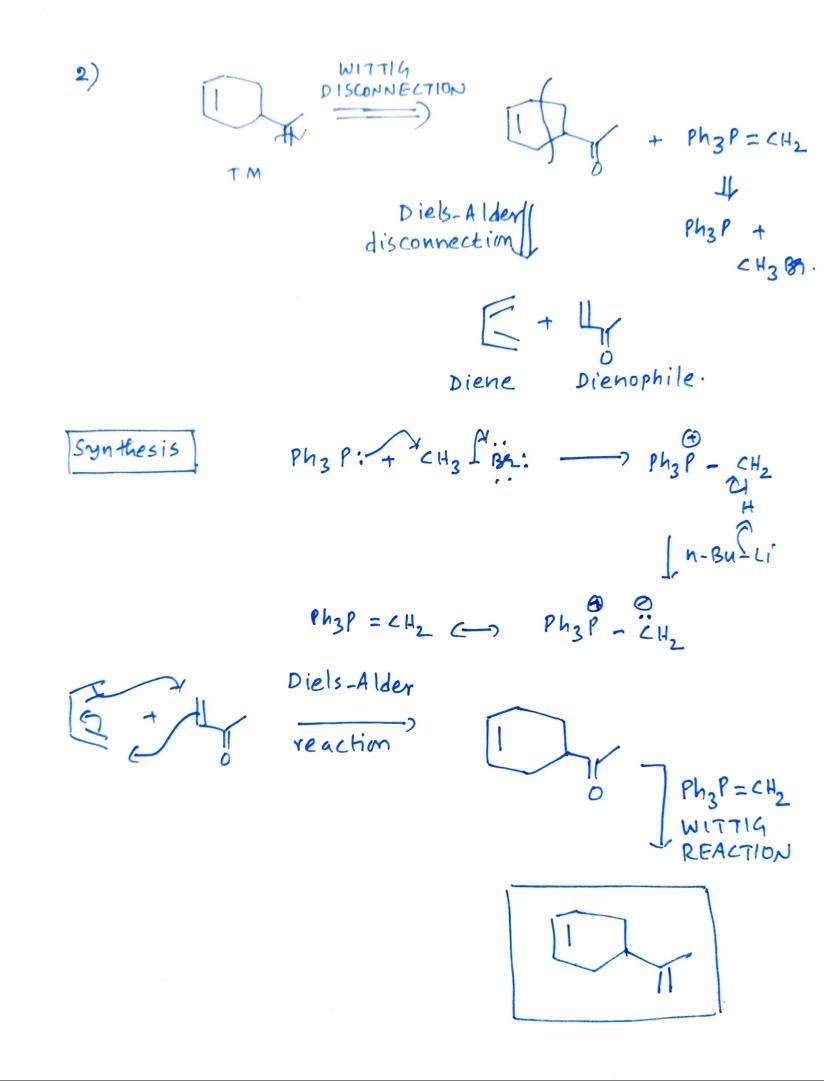 2)
WITTIG
DISCONNECTION
TM
O
+ Ph3P = CH2
Ph3P +
CH3 Br.
Diels-Alder
disconnection
+
O
Diene Dienophile.
Synthesis
Ph3 P: + CH3 - Br: ⟶ Ph3P⊕ - CH2
H
n-Bu-Li
Ph3P = CH2 ⟷ Ph3P⊕ - C̈H2⊖
+
O
Diels-Alder
reaction
O
Ph3P=CH2
WITTIG
REACTION